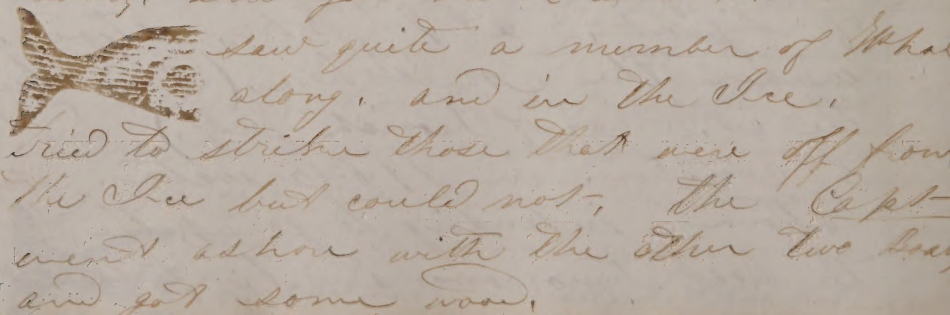 saw quite a number of Wha
along. and in the Ice.
tried to strike those that were off from
the Ice but could not, the Capt
went ashore with the other two boa
and got some wood.